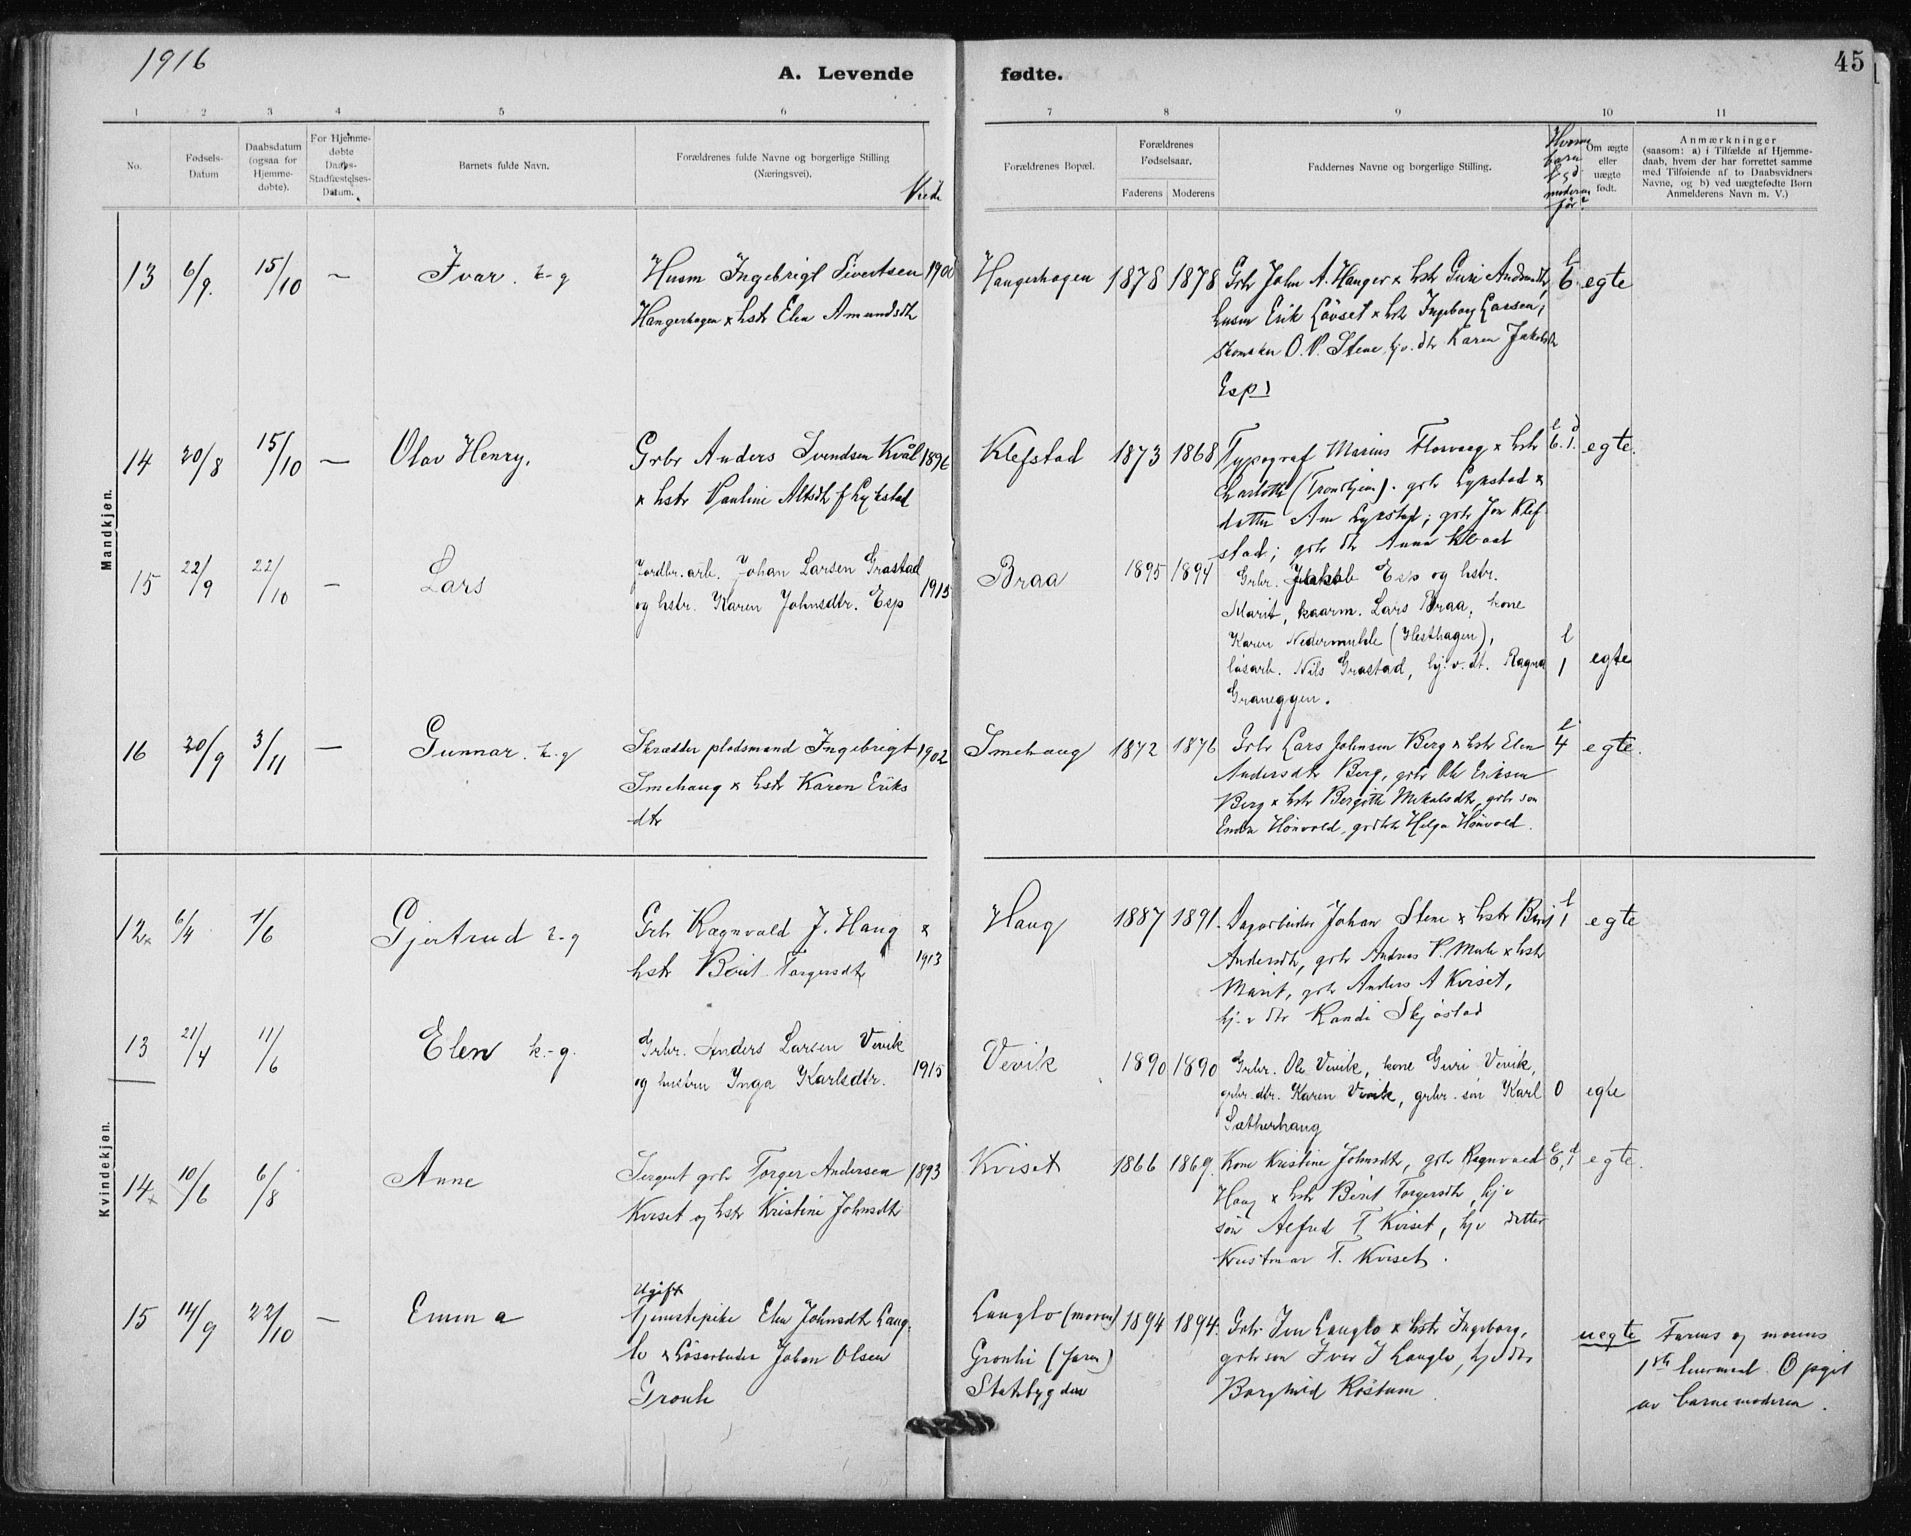 1916
A. Levende fødte.
45
1 2 3 4 5 6 7 8 9 10 11
No.
Fødsels-
Datum
Daabsdatum
(ogsaa for
Hjemme-
døbte).
For Hjemme-
døbte
Daabs-
Stadfæstelses-
Datum.
Barnets fulde Navn.
Forældrenes fulde Navne og borgerlige Stilling
(Næringsvei).
Viede
Forældrenes Bopæl.
Forældrenes
Fødselsaar.
Faderens Moderens
Faddernes Navne og borgerlige Stilling.
Hvormange
barn
moderen
før?
Om ægte
eller
uægte
født.
Anmærkninger
(saasom: a) i Tilfælde af Hjemme-
daab, hvem der har forrettet samme
med Tilføiende af to Daabsvidners
Navne, og b) ved uægtefødte Børn
Anmelderens Navn m. V.)
Mandkjøn.
13 6/9. 15/10 — Ivar. k-g Husm Ingebrigt Sivertsen 1900 Hangerhagen 1878 1878 Grbr John A. Hanger x hstr Guri Andersdtr, l 6. egte
Hangerhagen x hstr Elen Amundsdtr
husm Erik Løvset x hstr Ingeborg Larsen,
skomaker O. P. Stene, hjv. dtr Karen Jakobsdtr
Esp
14 20/8 15/10 — Olav Henry. Grbr Anders Svendsen Kvål 1896 Klefstad 1873 1868 Typograf Marius Florvaag x hstr l 6. d 1. egte.
x hstr Pauline Altsdtr f Lykstad
Charlotte (Trondhjem). grbr Lykstad x
datter Am Lykstad; grbr Jon Klef-
stad; grbr dtr Anna Klbaat
15 22/9 22/10 — Lars Jordbr. arb. Johan Larsen Grostad 1915 Braa 1895 1894 Grbr. Jakob Esp og hstr.
og hstr. Karen Johnsdtr. Esp
Marit, kaarm. Lars Braa, kone
Karen Nedermuhle (Hesthagen), l
løsarb. Nils Grostad, hj. v. dt. Ragna 1 egte
Graneggen.
16 20/9 3/11 — Gunnar. k-g Skrædder pladsmand Ingebrigt 1902 Smehaug 1872 1876 Grbr Lars Johnsen Berg x hstr Elen l 4 egte.
Smehaug x hstr Karen Eriks
dtr
Andersdtr Berg, grbr Ole Eriksen
Berg x hstr Bergitte Mikalsdtr, grbr søn
Hønvold, grbdtr Helga Hønvold.
Kvindekjøn.
12x 6/4 1/6 Gjertrud k-g Grbr Ragnvald J. Haug x 1913 Haug 1887 1891. Dagarbeider Johan Stene x hstr Berit l 1 egte
hstr Berit Torgersdtr
Andersdtr, grbr Andreas P. Muhle x hstr
Marit, grbr Anders A Kviset,
hj. v dtr Randi Skjøstad
13 21/4 11/6 Elen k.-g. Grbr. Anders Larsen Vevik 1915 Vevik 1890 1890 Grbr. Ole Vevik, kone Guri Vevik,
og hustru Inga Karlsdtr.
grbr. dtr. Karen Vevik, grbr. søn Karl 0 egte
Sætherhaug
14x 10/6 6/8 Anne Sergent grbr Torger Andersen 1893 Kviset 1866 1869. Kone Kristine Johnsdtr, grbr Ragnvald l 8, d 1 egte.
Kviset og hstr Kristine Johnsdtr
Haug x hstr Berit Torgersdtr, hjv
søn Alfred T Kviset, hjv datter
T. Kviset.
15 14/9 22/10 — Emma Ugift
tjenestepike Elen Johnsdtr Lang- Langlo (moren) 1894 1894. Grbr. Iver Langlo x hstr Ingeborg, uegte Farens og morens
lo x Løsarbeider Johan Olsen Gronli (faren) grbr søn Iver I Langlo, hjv dtr 1ste leiermaal. Opgit
Gronli Stadsbygden Borghild Røstum av barnemoderen.